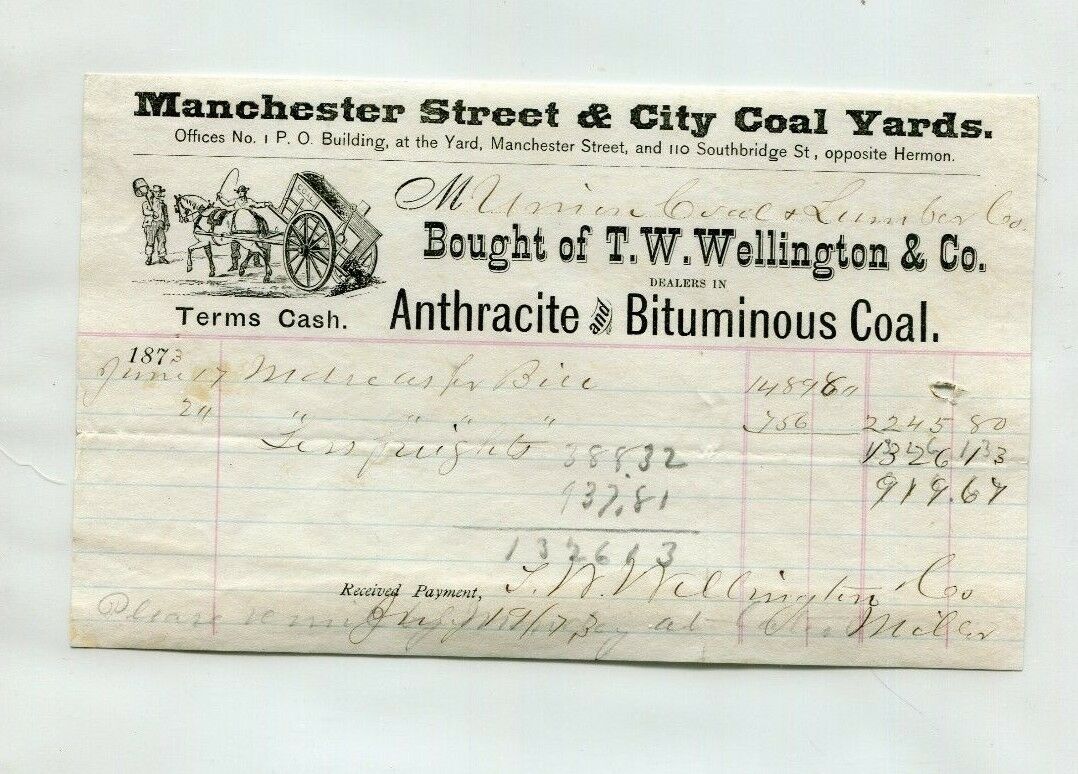 Manchester Street & City Coal Yards.
Offices No. 1 P. O. Building, at the Yard, Manchester Street, and 110 Southbridge St, opposite Hermon.
M Union Coal & Lumber Co.
Bought of T. W. Wellington & Co.
DEALERS IN
Anthracite and Bituminous Coal.
Terms Cash.
1873
June 17 Mdse as per Bill 1489 80
" " " 756 2245 80
Less freights 1326 13
388.32
937.81 919.67
132613
Received Payment, T. W. Wellington Co
Please at Miller
July 73